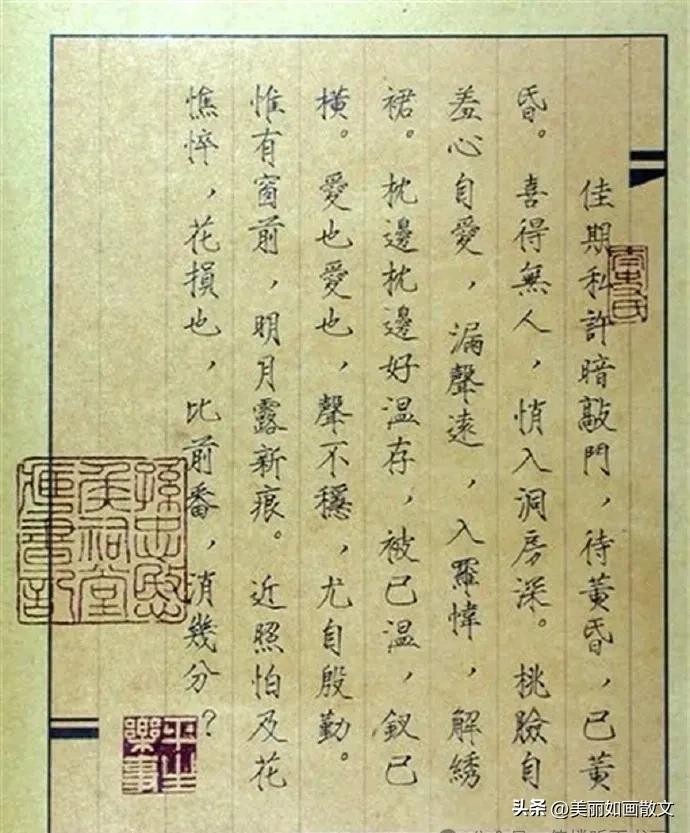 佳期私許暗敲門，待黃昏，已黃
昏。喜得無人，悄入洞房深。桃臉自
羞心自愛，漏聲遠，入羅幃，解綉
裙。枕邊枕邊好温存，被已温，釵已
橫。愛也愛也，聲不穩，尤自殷勤。
惟有窗前，明月露新痕。近照怕及花
憔悴，花損也，比前番，消幾分？
孫忠愍
侯祠堂
藏書記
平生
樂事
头条 @美丽如画散文